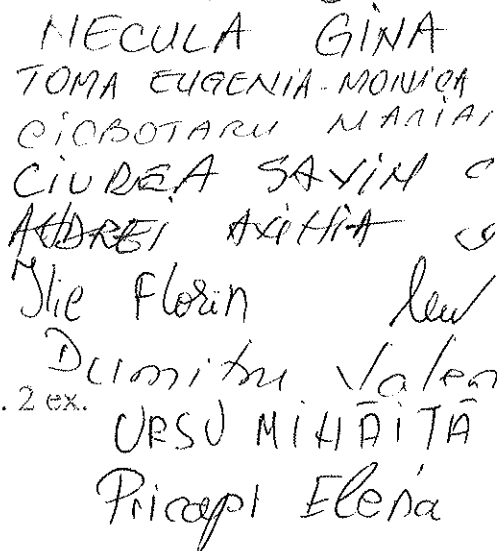 NECULA GINA
TOMA EUGENIA-MONICA
CIOBOTARU MARIA
CIUREA SAVIN C
ANDREI AXINIA
Ilie Florin
Dumitru Valen
. 2 ex.
URSU MIHĂIȚĂ
Pricopi Elena